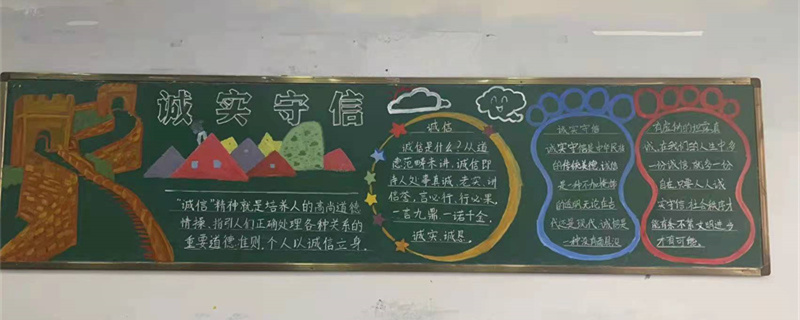 诚实守信
"诚信"精神就是培养人的高尚道德
情操,指引人们正确处理各种关系的
重要道德准则,个人以诚信立身。
诚信
诚信是什么?从道
德范畴来讲,诚信即
待人处事真诚、老实、讲
信誉,言必行、行必果,
一言九鼎,一诺千金,
诚实,诚恳。
诚实守信
诚实守信是中华民族
的传统美德,诚信
是一种不加掩饰
的透明,无论在古
代还是现代,诚信都是
一种
在我们的
诚,在我们的人生中,多
一份诚信,就多一份
自在,只要人人诚
实守信,社会秩序才
能有条不紊,文明进步
才有可能。